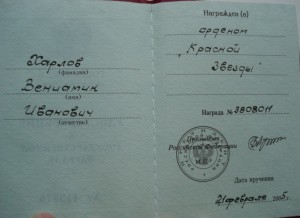 Харлов
(фамилия)
Вениамин
(имя)
Иванович
(отчество)
Награжден (а)
орденом
"Красной
Звезды"
Награда № 3808011
Президент
Российской Федерации
Дата вручения
21 февраля 2005 г.